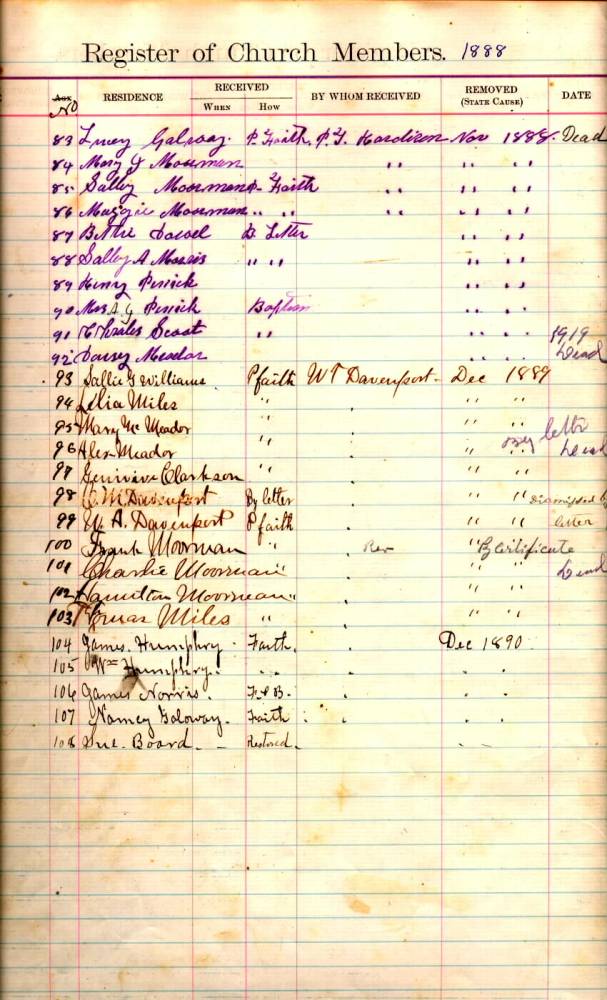 Register of Church Members. 1888
No RESIDENCE RECEIVED When How BY WHOM RECEIVED REMOVED (State Cause) DATE
83 Lucy Galoway. P. Faith. P.T. Hardison Nov 1888. Dead
84 Mary J Moorman " " " "
85 Sally Moorman P. Faith " "
86 Maggie Moorman " " " " " "
87 Dowel B Letter " "
88 Sally A Morris " " " "
89 Henry Penick " "
90 Mrs A G Penick Baptism " "
91 Charles Scoot " " " 1919
92 Meador " " Dead
93 Sallie G Williams Pfaith W T Davenport Dec 1889
94 Lelia Miles " " "
95 Mary Mc Meador " " " By letter
96 Alex Meador " " " Dead
97 Genivive Clarkson " " "
98 C. M Davenport By letter " " Dismissed by
99 W. A. Davenport P faith " " letter
100 Frank Moorman " Rev " By Certificate
101 Charlie Moorman " " " Dead
102 Hamilton Moorman " " "
103 Thomas Miles " " "
104 James. Humphry Faith. Dec 1890.
105 Wm Humphry.
106 James Norris. F & B.
107 Nancy Galoway. Faith
108 Sue. Board. Restored.